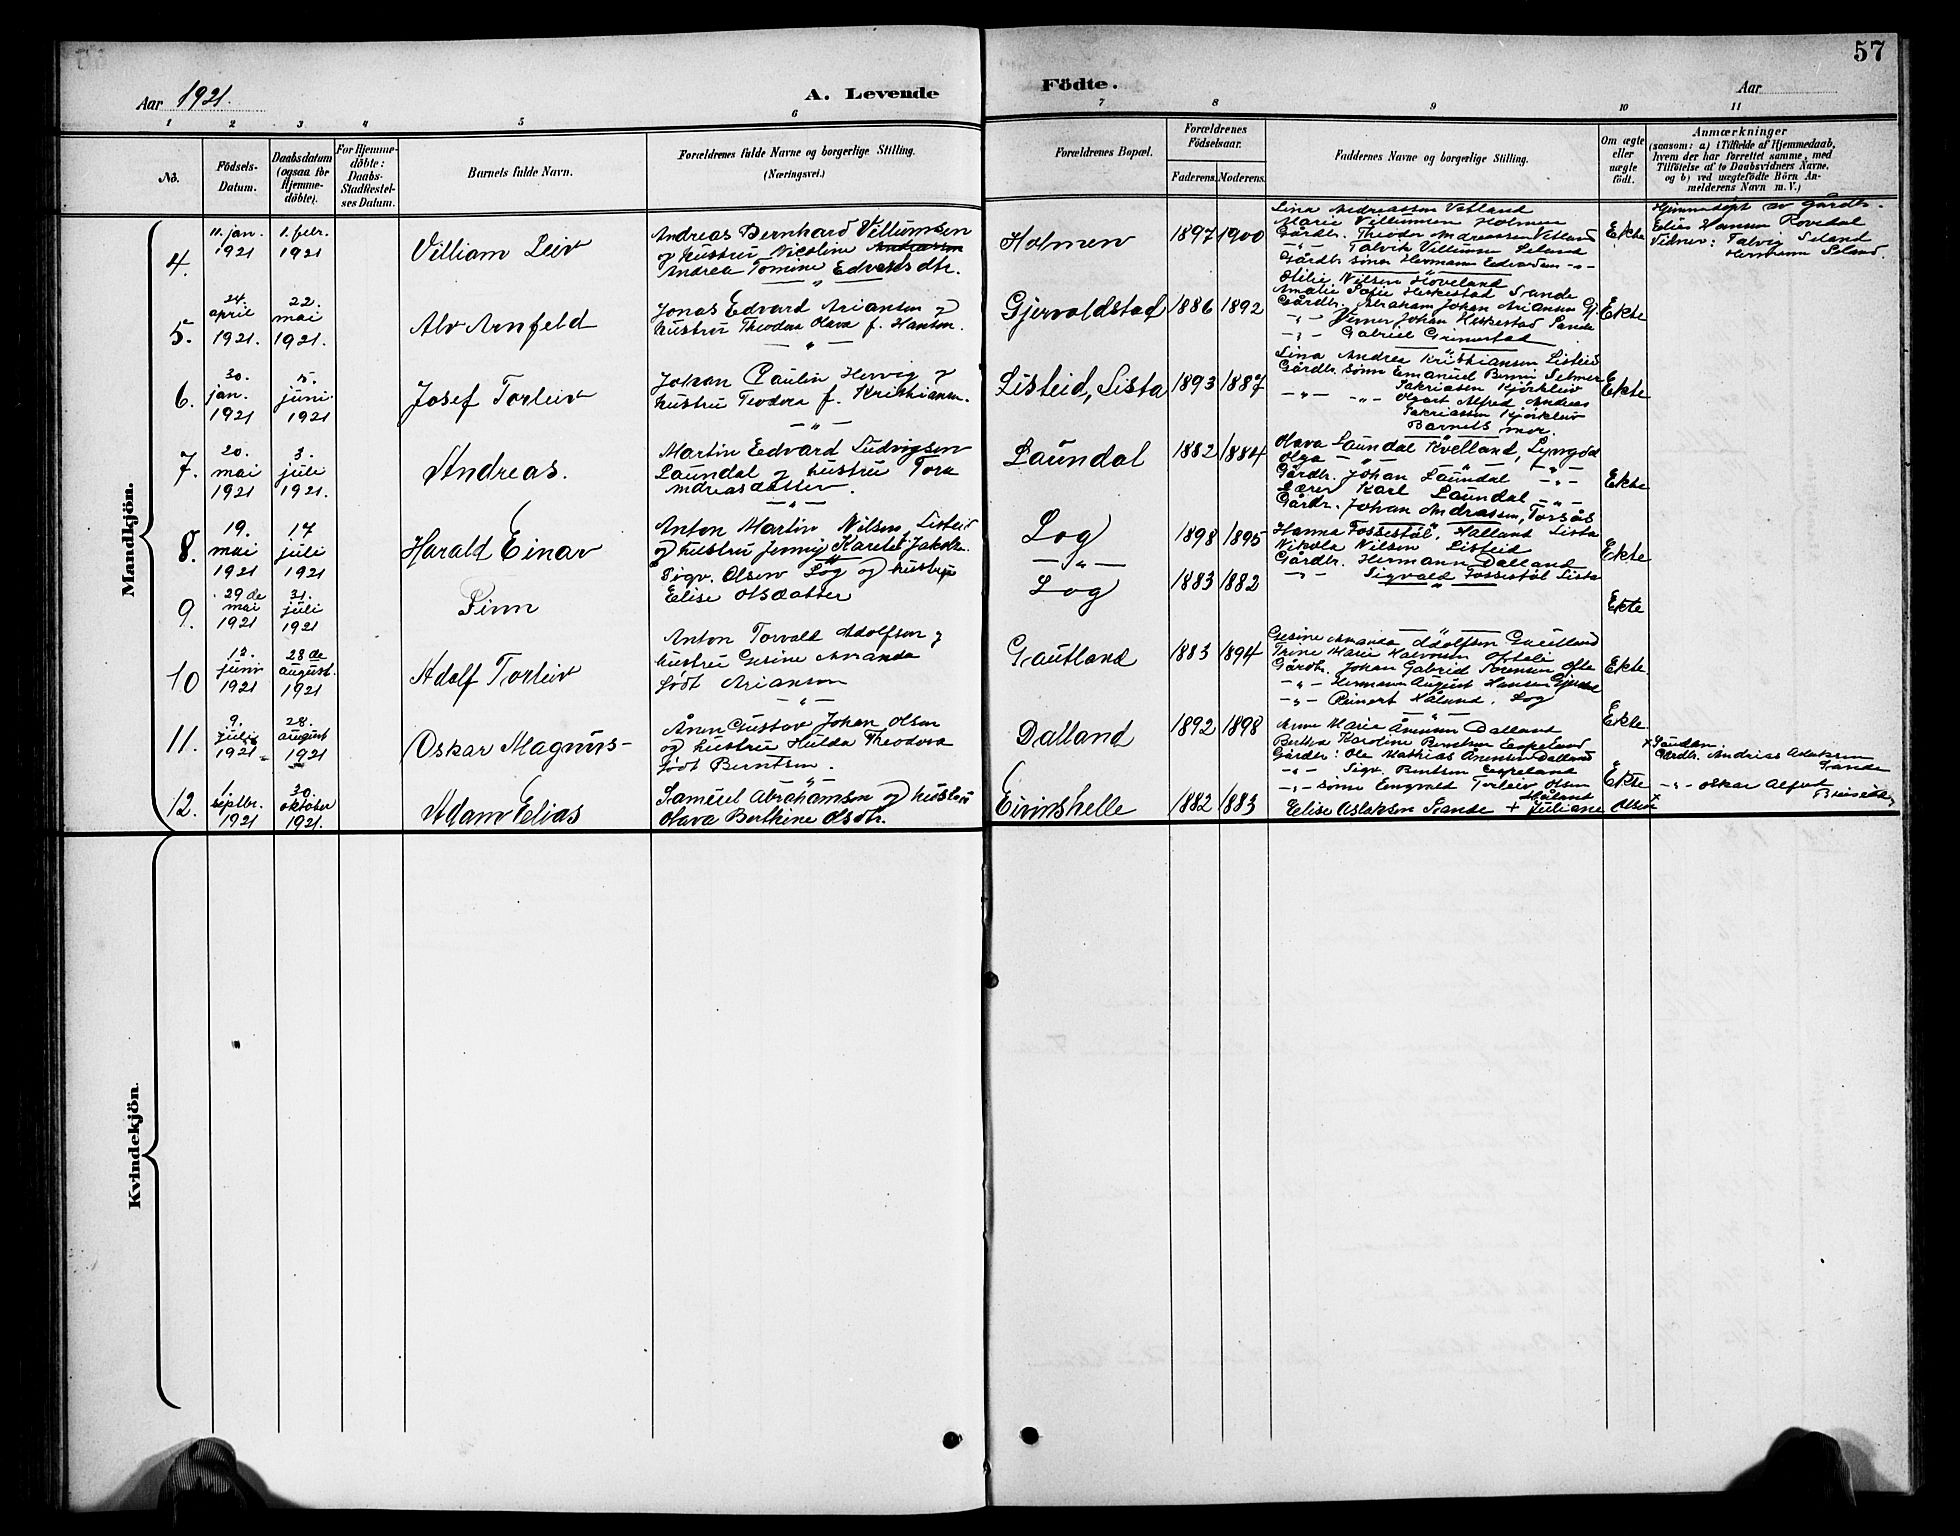 57
Aar 1921.
A. Levende
Födte.
Aar
1 2 3 4 5 6 7 8 9 10 11
No.
Födsels-
Datum.
Daabsdatum
(ogsaa for
Hjemme-
döbte).
For Hjemme-
döbte:
Daabs-
Stadfæstel-
ses Datum.
Barnets fulde Navn.
Forældrenes fulde Navne og borgerlige Stilling.
(Næringsvei.)
Forældrenes Bopæl.
Forældrenes
Födselsaar.
Faderens. Moderens.
Faddernes Navne og borgerlige Stilling.
Om ægte
eller
uægte
födt.
Anmærkninger
(saasom: a) i Tilfælde af Hjemmedaab,
hvem der har forrettet samme, med
Tilföielse af to Daabsvidners Navne,
og b) ved uægtefödte Börn An-
melderens Navn m. V.)
Mandkjön.
4.
11. jan.
1921
1. febr.
1921
Villiam Leiv
Andreas Bernhard Villumsen
og hustru Nicoline Andreassen
Andrea Tomine Edvardsdtr.
Holmen
1897 1900
Lina Andreassen Vatland
Marie Villumsen Holmen
Gårdbr. Theodor Andreassen Vatland
-"- Talvik Villumsen Seland
Gårdbr. sönn Hermann Edvardsen -"-
Ekte
Hjemmedøpt av gårdbr.
Elias Hansen Rovedal
Vidner: Talvig Seland
Hermann Seland.
5.
24.
april
1921.
22.
mai
1921.
Alv Arnfeld
Jonas Edvard Ariansen og
hustru Theodora Olava f. Hansen.
Gjervoldstad
1886 1892
Otilie Nilsen Hoveland
Amalie Sofie Heskestad Sande
Gårdbr. Abraham Johan Ariansen Gj.
-"- Verner Johan Heskestad Sande
-"- Gabriel Grimestad
Ekte
6.
30.
jan.
1921
5.
juni
1921
Josef Torleiv
Johan Paulin Hervig og
hustru Teodora f. Kristiansen.
Listeid, Lista
1893 1887
Lina Andrea Kristiansen Listeid
Gårdbr. sönn Emanuel Selmer
Sakriasen Kjörkleiv
-"- -"- Alfred Andreas
Sakriassen Kjörkleiv
Barnets mor.
Ekte
7.
20.
mai
1921
3.
juli
1921.
Andreas.
Martin Edvard Ludvigsen
Laundal og hustru Tora
Andreasdatter.
Laundal
1882 1884
Olava Laundal Kvelland, Lyngdal
Olga -"- -"-
Gårdbr. Johan Laundal -"-
Lærer Karl Laundal -"-
Gårdbr. Johan Andrassen, Torsås
Ekte
8.
19.
mai
1921
17
juli
1921
Harald Einar
Anton Martin Nilsen, Listeid
og hustru Jenny Karete Jakobsen.
Log
-"-
1898 1895
Hanna Fossestöl, Halland Lista
Nikola Nilsen Listeid
Gårdbr. Hermann Dalland
-"- Sigvald Fossestöl Lista
Ekte
9.
29 de
mai
1921
31.
juli
1921
Finn
Sigv. Olsen Log og hustru
Elise Olsdatter
Log
1883 1882
Ekte
10
12.
juni
1921
28 de
august.
1921
Adolf Torleiv
Anton Torvald Adolfsen og
hustru Gesine Amanda
født Arianson
Gautland
1883 1894
Gesine Amanda Adolfsen Gautland
Trine Marie
Gårdbr. Johan Gabriel Sörensen Ofte
-"- Hermann August Hansen
-"- Reinert Håland, Log
Ekte
11.
9.
juli
1921
28.
august
1921
Oskar Magnus
Ånen Gustav Johan Olsen
og hustru Hulda Theodora
født Berntsen.
Dalland
1892 1898
Anne Marie Ånensen Dalland
Berthea Karoline Berntsen Espeland
Gårdbr: Ole Mathias Ånensen Dalland
-"- Sigv. Berntsen Espeland
-"- sönn Engvald Torleiv Olsen
Håland
Ekte
12.
1.
septbr.
1921
30.
oktober
1921.
Adam Elias
Samuel Abrahamsen og hustru
Olava Berthine Olsdtr.
Eivinshelle
1882 1883
Elise Aslaksen Sande + Juliane Olsen
Ekte
Gårdbr. Andreas Aslaksen
Sande
-"- Oskar Alfred
Kvindekjön.